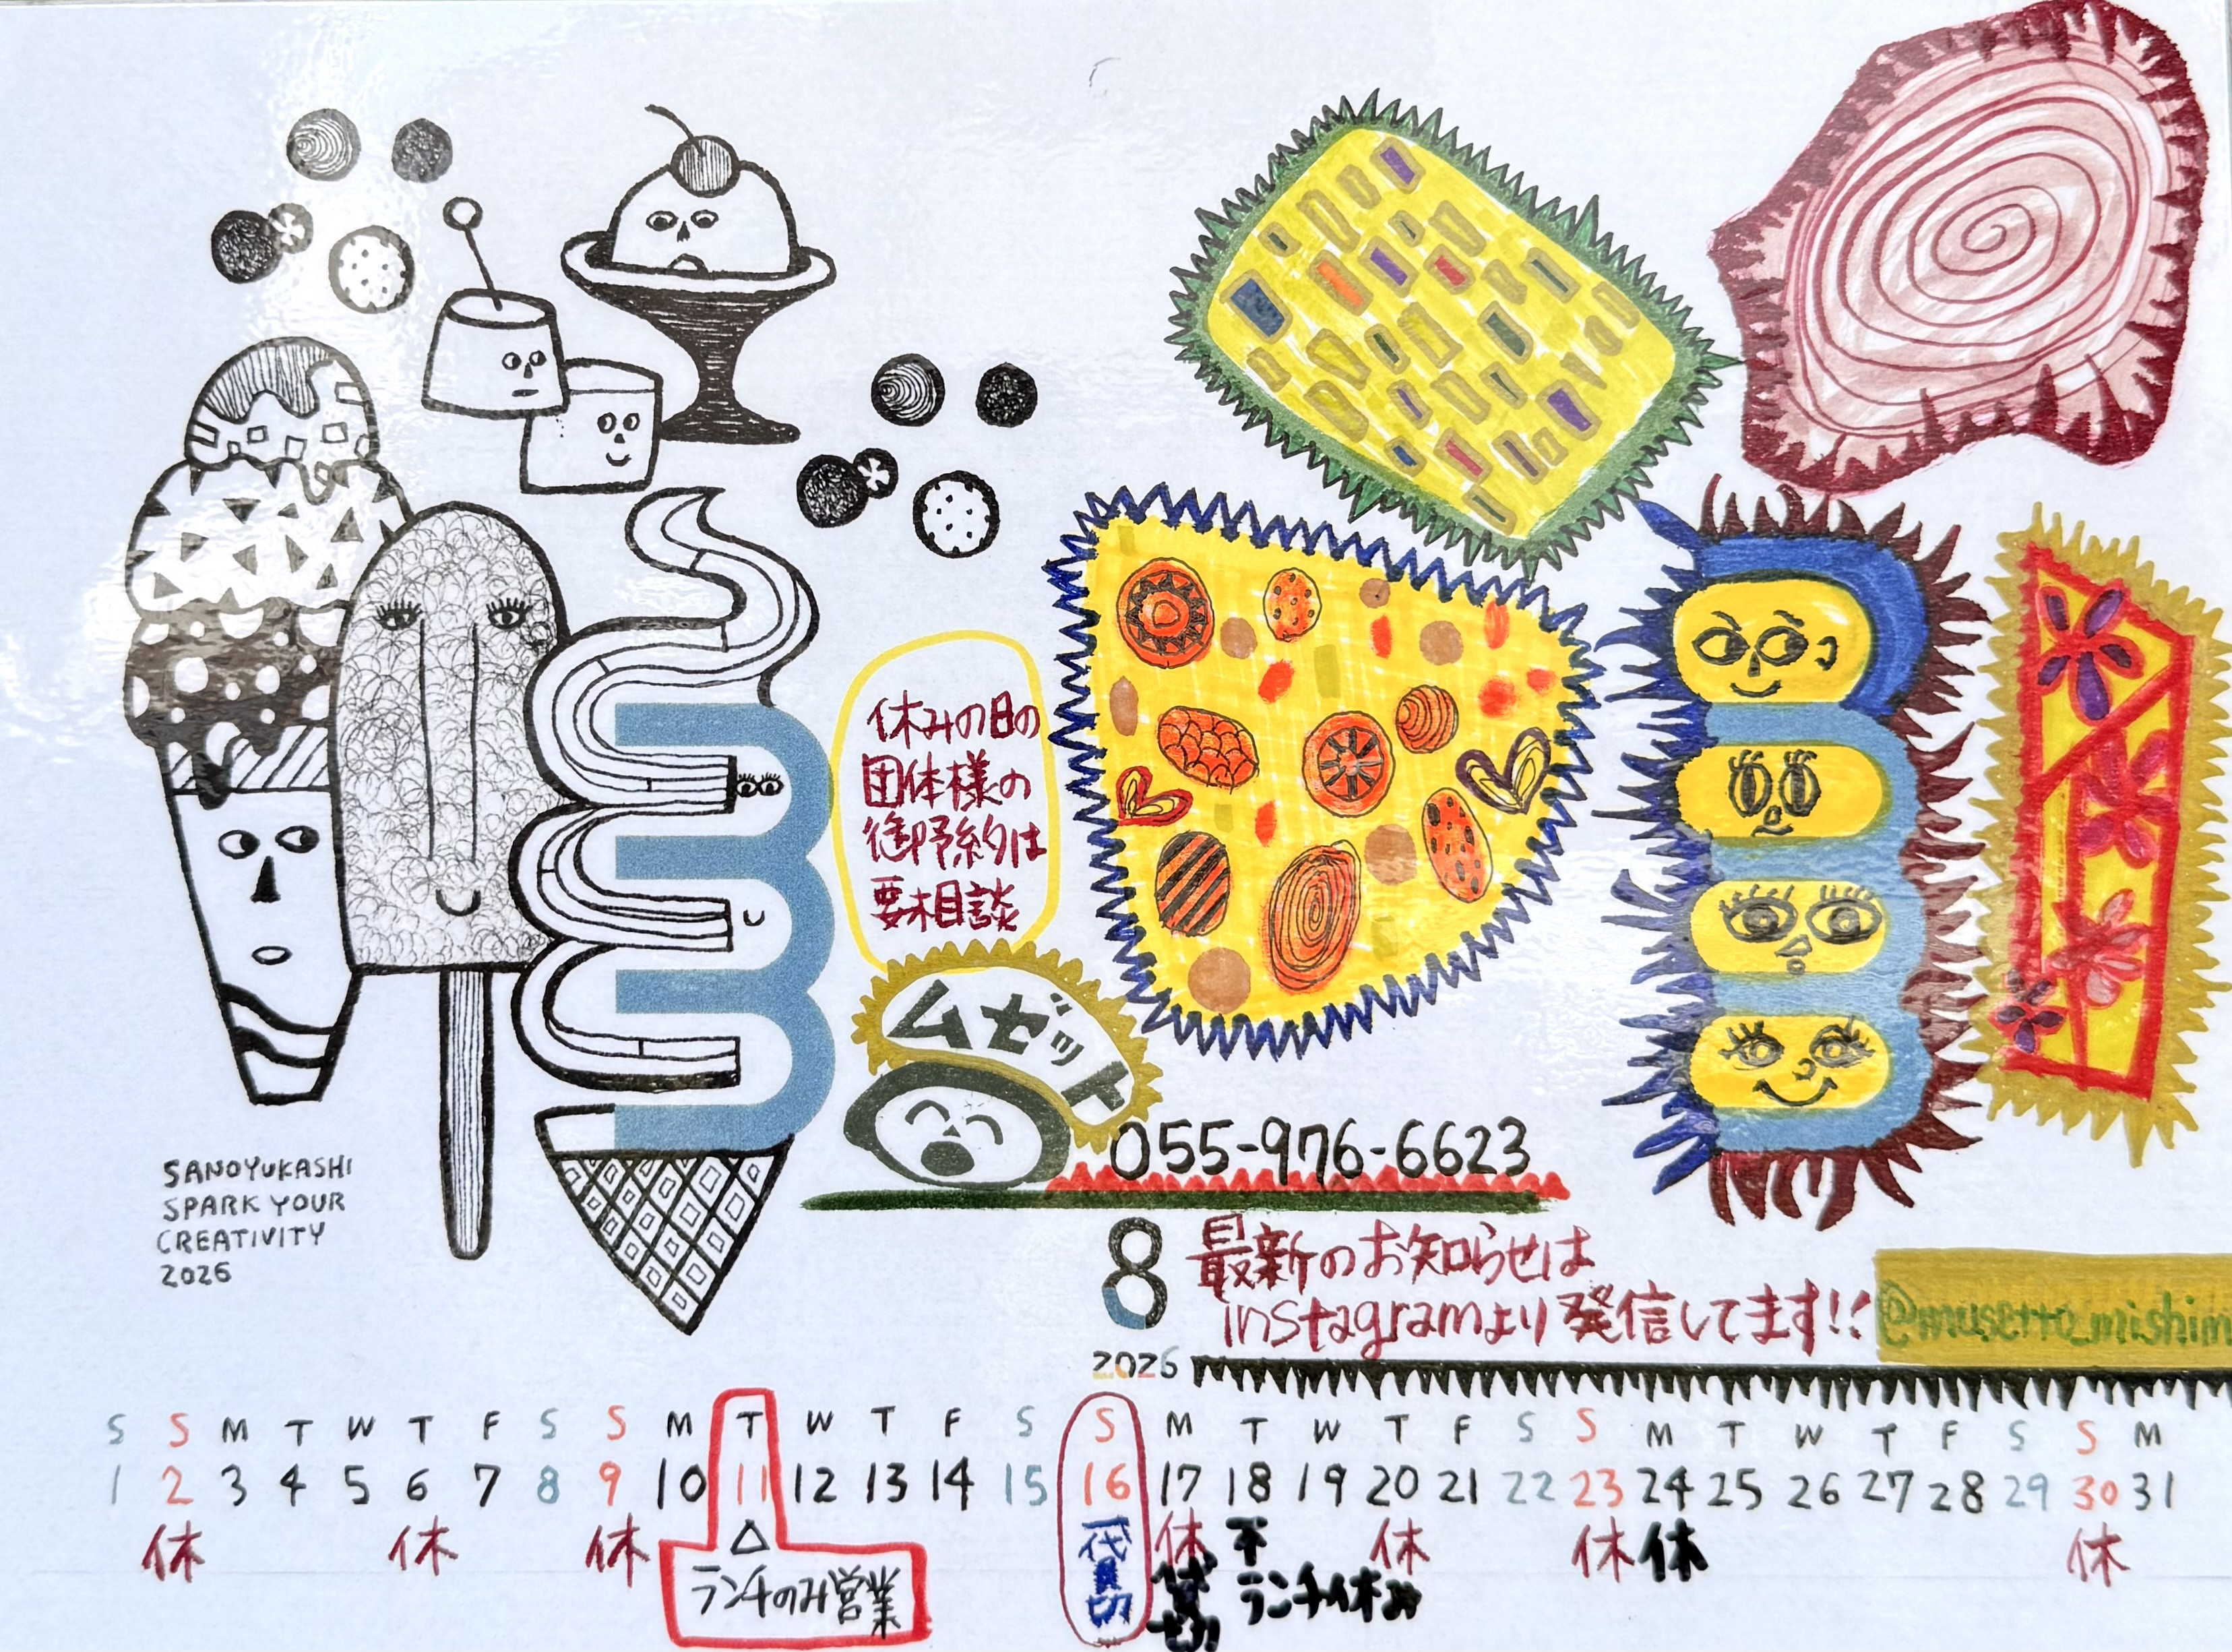 休みの日の
団体様の
御予約は
要相談
ムゼット
055-976-6623
SANOYUKASHI
SPARK YOUR
CREATIVITY
2026
8
最新のお知らせは
instagramより発信してます!!
@musetto_mishim
2026
S S M T W T F S S M T W T F S S M T W T F S S M T W T F S S M
1 2 3 4 5 6 7 8 9 10 11 12 13 14 15 16 17 18 19 20 21 22 23 24 25 26 27 28 29 30 31
休 休 休 △ 貸切 休 休 休 休 休
ランチのみ営業
貸切
ランチ休み